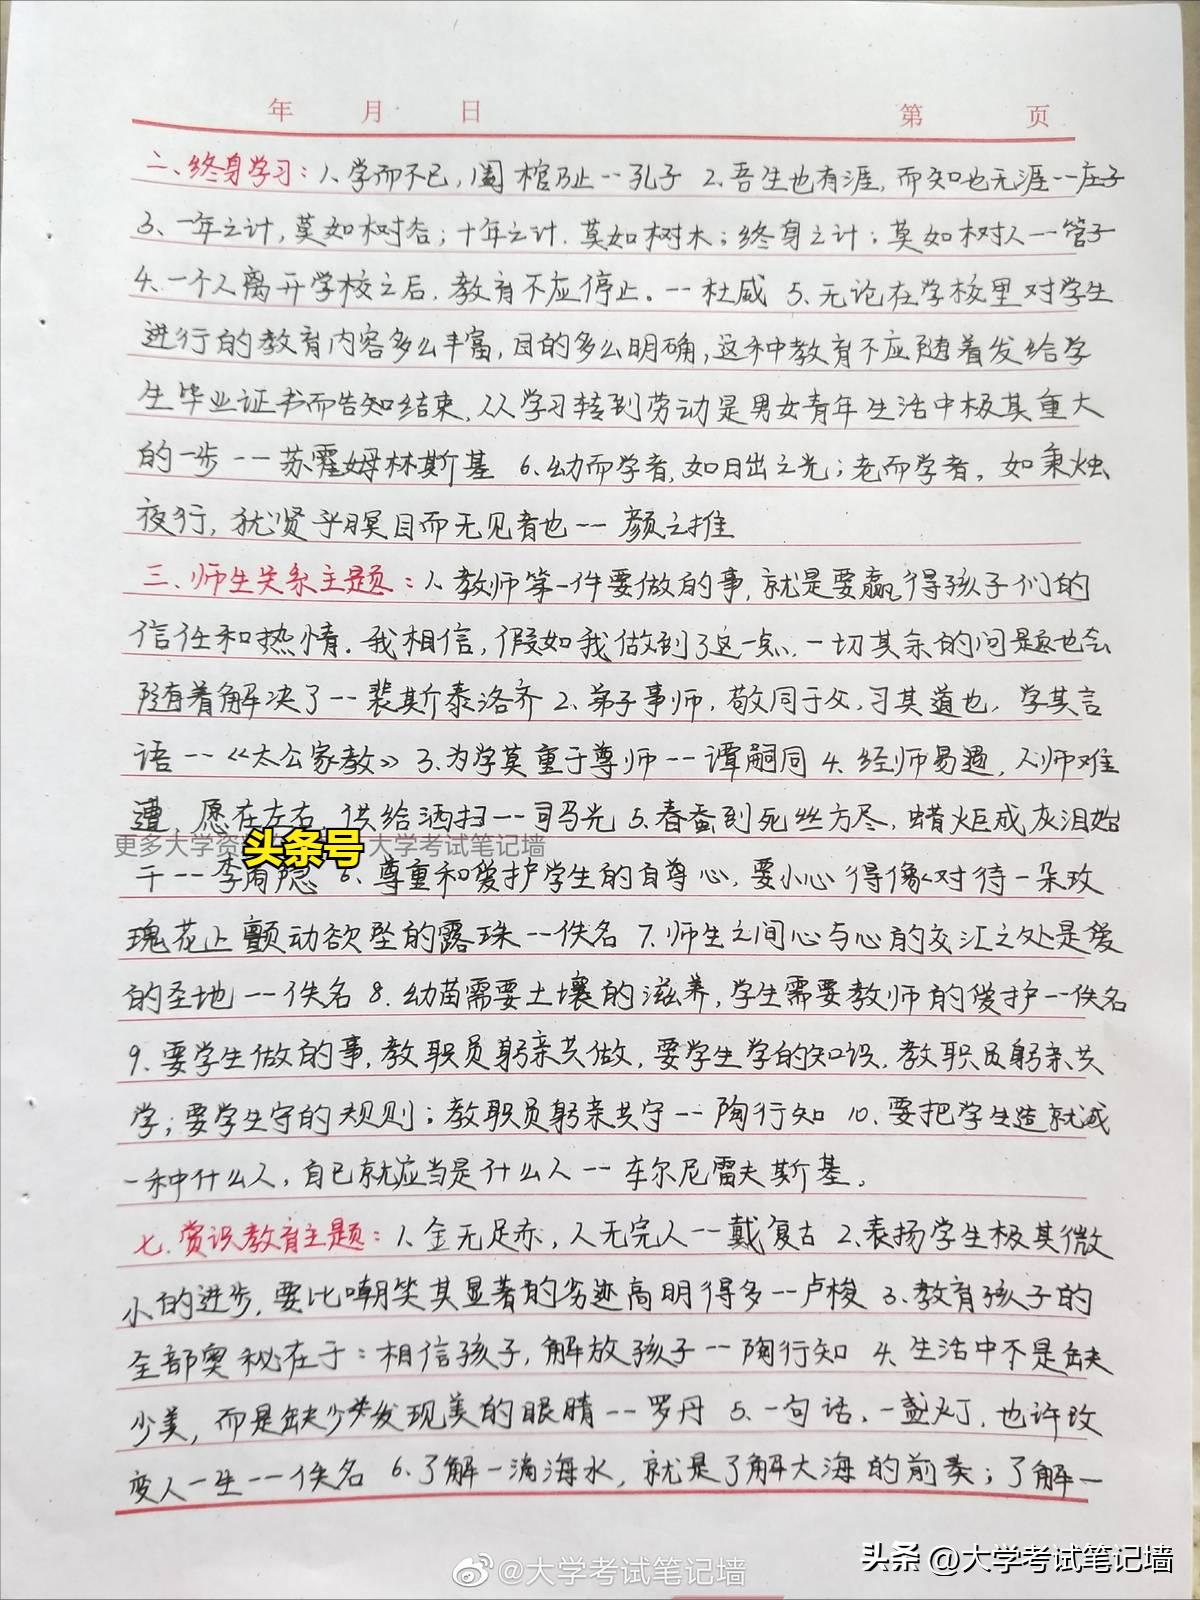 年 月 日 第 页
二、终身学习：1、学而不已，阖棺乃止--孔子 2、吾生也有涯，而知也无涯--庄子
3、一年之计，莫如树谷；十年之计，莫如树木；终身之计；莫如树人--管子
4、一个人离开学校之后，教育不应停止。--杜威 5、无论在学校里对学生
进行的教育内容多么丰富，目的多么明确，这种教育不应随着发给学
生毕业证书而告知结束，从学习转到劳动是男女青年生活中极其重大
的一步--苏霍姆林斯基 6、幼而学者，如日出之光；老而学者，如秉烛
夜行，犹贤乎瞑目而无见者也--颜之推
三、师生关系主题：1、教师第一件要做的事，就是要赢得孩子们的
信任和热情。我相信，假如我做到了这一点，一切其余的问题也会
随着解决了--裴斯泰洛齐 2、弟子事师，敬同于父，习其道也，学其言
语--《太公家教》 3、为学莫重于尊师--谭嗣同 4、经师易遇，人师难
遭 愿在左右 供给洒扫--司马光 5、春蚕到死丝方尽，蜡炬成灰泪始
更多大学资 头条号 大学考试笔记墙
干--李商隐 6、尊重和爱护学生的自尊心，要小心得像对待一朵玫
瑰花上颤动欲坠的露珠--佚名 7、师生之间心与心的交汇之处是爱
的圣地--佚名 8、幼苗需要土壤的滋养，学生需要教师的爱护--佚名
9、要学生做的事，教职员躬亲共做，要学生学的知识，教职员躬亲共
学；要学生守的规则；教职员躬亲共守--陶行知 10、要把学生造就成
一种什么人，自己就应当是什么人--车尔尼雷夫斯基。
七、赏识教育主题：1、金无足赤，人无完人--戴复古 2、表扬学生极其微
小的进步，要比嘲笑其显著的劣迹高明得多--卢梭 3、教育孩子的
全部奥秘在于：相信孩子，解放孩子--陶行知 4、生活中不是缺
少美，而是缺少发现美的眼睛--罗丹 5、一句话，一盏灯，也许改
变人一生--佚名 6、了解一滴海水，就是了解大海的前奏；了解一
@大学考试笔记墙
头条 @大学考试笔记墙